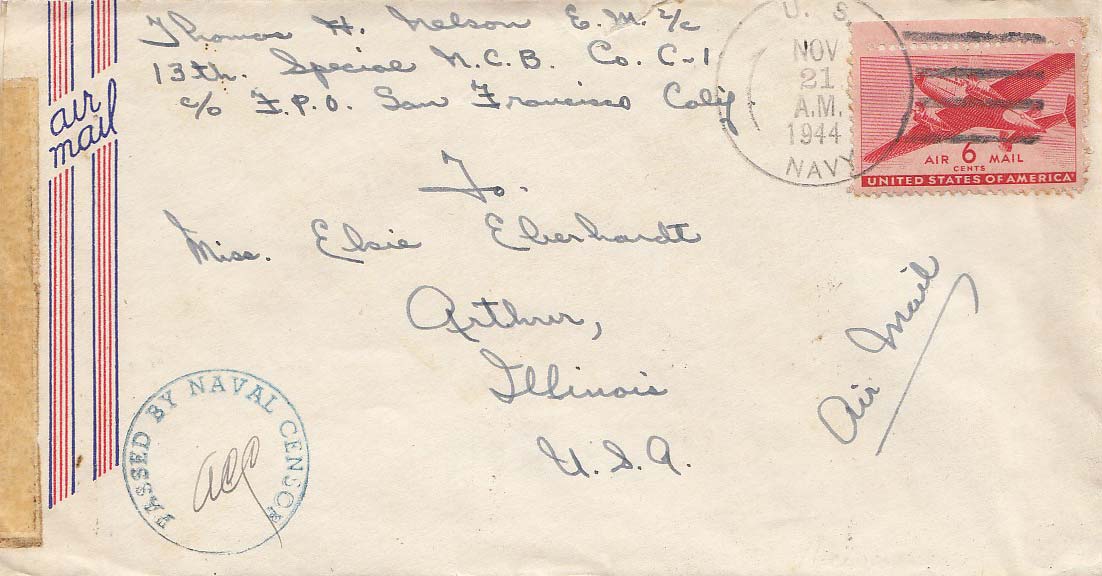 Thomas H. Nelson E.M. 2/c
13th. Special N.C.B. Co. C-1
c/o F.P.O. San Francisco Calif.
air
mail
U. S.
NOV
21
A.M.
1944
NAVY
AIR 6 MAIL
CENTS
UNITED STATES OF AMERICA
To.
Miss. Elsie Eberhardt
Arthur,
Illinois
U.S.A.
Air Mail
PASSED BY NAVAL CENSOR